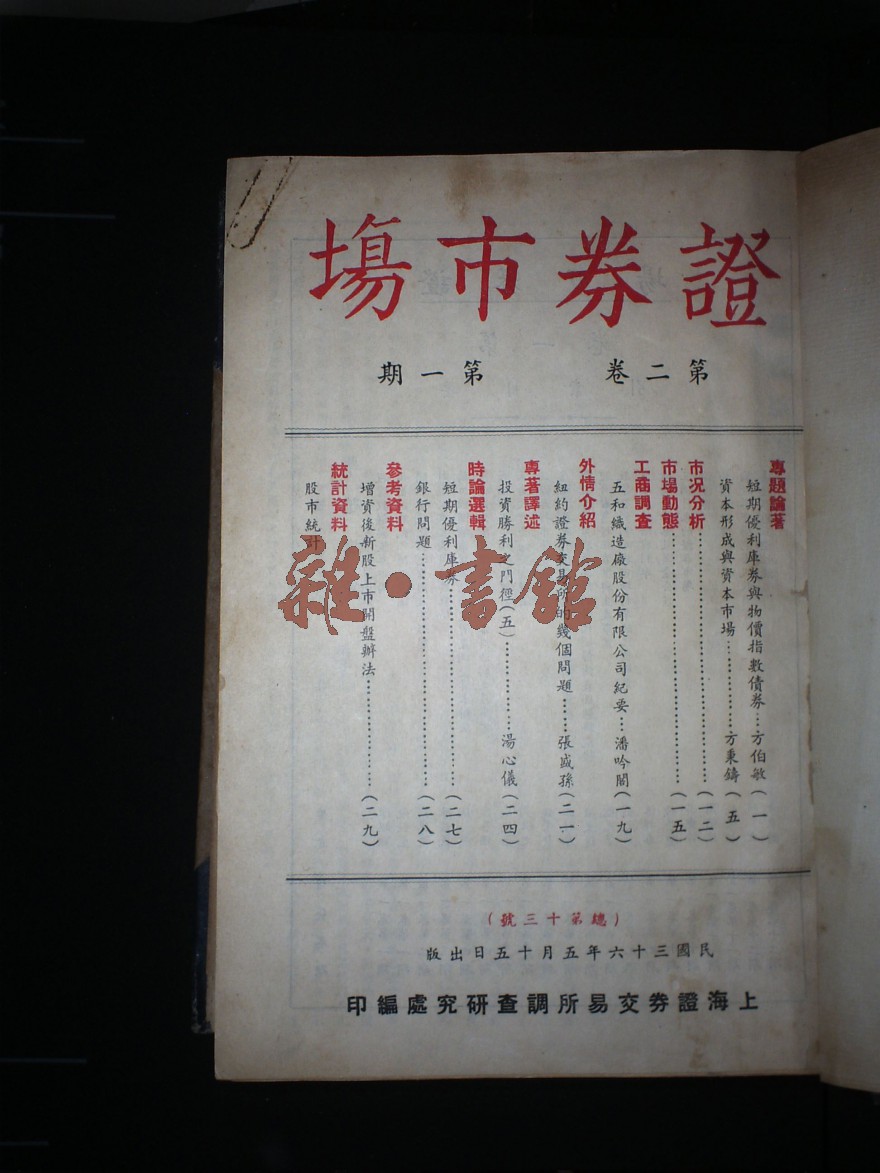 證券市場
第二卷 第一期
專題論著
短期優利庫券與物價指數債券…方伯敏(一)
資本形成與資本市場……………方秉鑄(五)
市况分析……………………………(一二)
市場動態……………………………(一五)
工商調查
五和織造廠股份有限公司紀要…潘吟閣(一九)
外情介紹
紐約證券交易所的幾個問題……張盛孫(二一)
專著譯述
投資勝利之門徑(五)……………湯心儀(二四)
時論選輯
短期優利庫券……………………(二七)
銀行問題……………………………(二八)
參考資料
增資後新股上市開盤辦法…………(二九)
統計資料
股市統計
(總第十三號)
民國三十六年五月十五日出版
上海證券交易所調查研究處編印
雜·書館